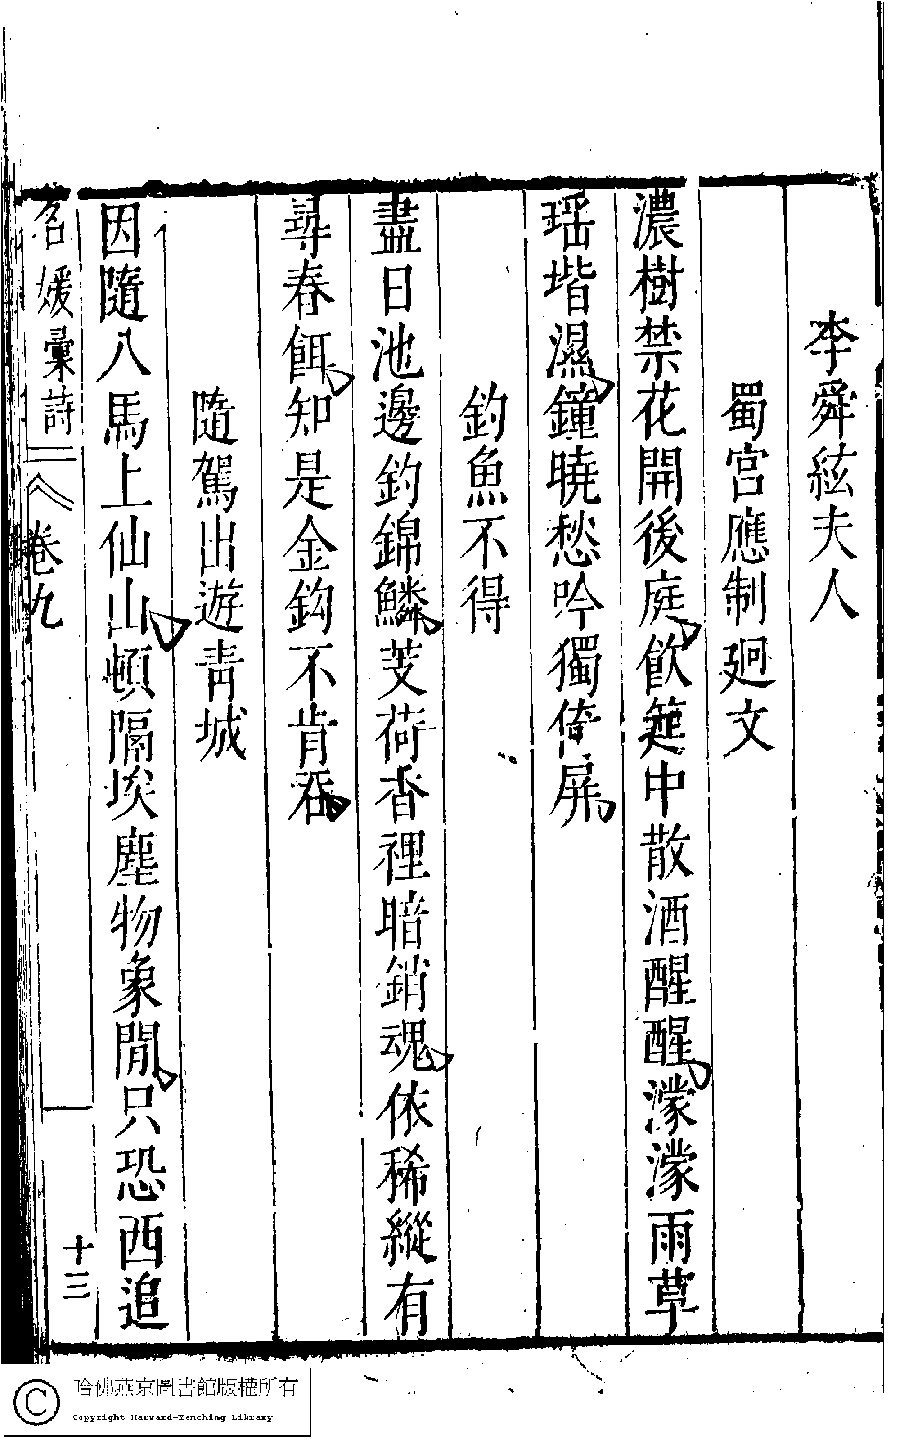 李舜絃夫人
蜀宮應制廻文
濃樹禁花開後庭飲筵中散酒醒醒濛濛雨草
瑶堦濕鐘曉愁吟獨倚屏
釣魚不得
盡日池邊釣錦鱗芰荷香裡暗銷魂依稀縱有
尋春餌知是金鈎不肯吞
隨駕出遊青城
因隨八馬上仙山頓隔埃塵物象閒只恐西追
名媛彙詩 卷九 十三
哈佛燕京圖書館版權所有
Copyright Harvard-Yenching Library